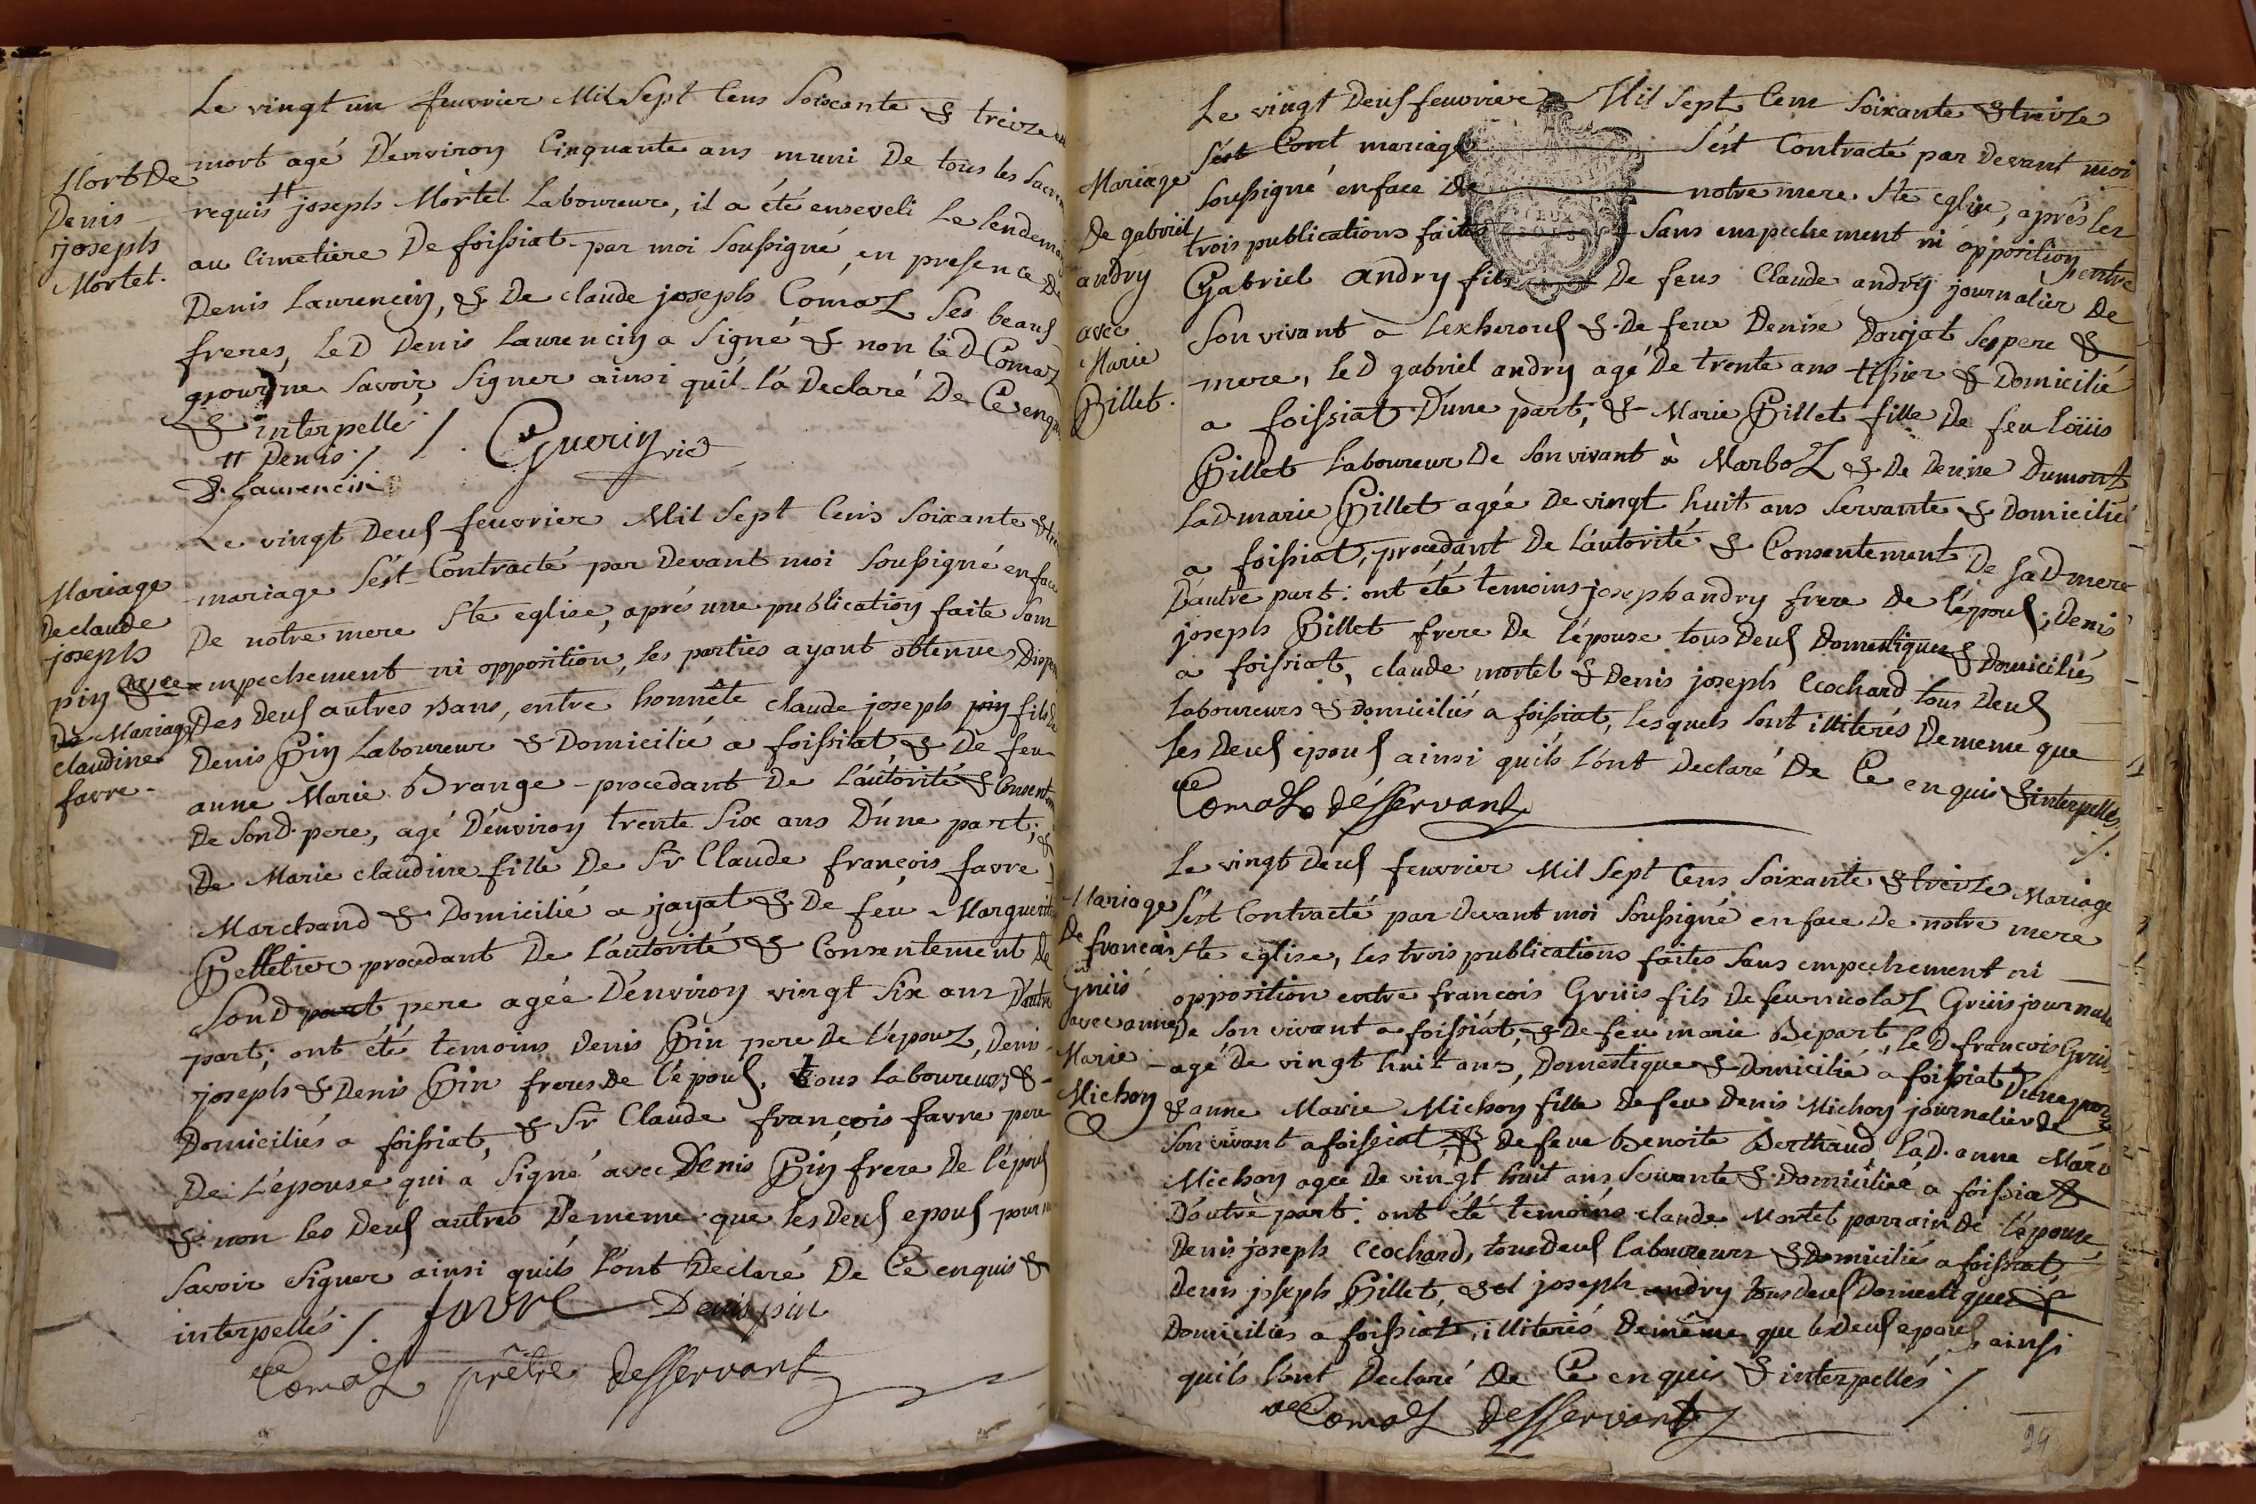 Le vingt un feuvrier Mil Sept Cens Soixante & treize est
Mort De
Denis
joseph
Mortel.
mort agé D'environ Cinquante ans muni De tous les Sacrem
requis # joseph Mortel Laboureur, il a été enseveli Le lendemain
au Cimetiere De foissiat par moi Soussigné, en presence De
Denis Laurencin, & De claude joseph Comaz Ses beaus
freres, Le D Denis Laurencin a Signé & non le D Comaz
pour ne Savoir Signer ainsi quil l'a Declaré De Ce enquis
& interpellé /.
# Denis /
Guerin vic
D. Laurencin
Le vingt Deus feuvrier Mil Sept Cens Soixante & tre
Mariage
De claude
joseph
pin avec
De Marie
claudine
favre.
mariage S'est Contracté par Devant moi Soussigné en face
De notre mere Ste eglise, aprés une publication faite Sans
empechement ni opposition, les parties ayant obtenue Dispen
Des Deus autres Bans, entre honnête claude joseph pin fils De
Denis Pin Laboureur & Domicilié a foissiat & De feu
anne Marie Brange procedant De L'autorité & Consentem
De Son D. pere, agé D'environ trente Six ans D'une part; &
De Marie claudine fille De Sr Claude françois favre
Marchand & Domicilié a jayat & De feu Marguerite
Pelletier procedant De L'autorité & Consentement De
Son D part pere agée D'environ vingt Six ans D'autre
part; ont été temoins Denis Pin pere De L'épouz, Denis
joseph & Denis Pin freres De l'épous, tous Laboureurs &
Domiciliés a foissiat, & Sr Claude françois favre pere
De L'épouse qui a Signé avec Denis Pin frere De l'épous
& non les Deus autres De meme que les Deus epous pour ne
Savoir Signer ainsi quils l'ont Declaré De Ce enquis &
interpellés /. favre Denis pin
Comaz prêtre Desservant
Le vingt Deus feuvrier Mil Sept Cens Soixante & treize
Mariage
De gabriel
andry
avec
Marie
Pillet.
S'est Cont mariage S'est Contracté par Devant moi
Soussigné en face De notre mere Ste eglise, aprés les
trois publications faites Sans empechement ni opposition entre
Gabriel andry fils De feus Claude andry journalier De
Son vivant à Lexheroux & De feue Denise Doujat Ses pere &
mere, Le D gabriel andry agé De trente ans tissier & Domicilié
a foissiat D'une part; & Marie Pillet fille De feu loüis
Pillet Laboureur De Son vivant à Marboz & De Denise Dumont
La D marie Pillet agée De vingt huit ans Servante & Domicilié
a foissiat, procedant De L'autorité & Consentement De Sa D mere
D'autre part: ont été temoins joseph andry frere De l'épous; Denis
joseph Pillet frere De l'épouse tous Deus Domestiques & Domiciliés
a foissiat, claude mortel & Denis joseph Cochard tous Deus
Laboureurs & Domiciliés a foissiat, lesquels Sont illiterés De meme que
les Deus épous ainsi quils l'ont Declaré De Ce enquis & interpellés /.
Comaz Désservant
Le vingt Deus feuvrier Mil Sept Cens Soixante & treize Mariage
Mariage
De francois
Grüis
avec anne
Marie
Michon
S'est Contracté par Devant moi Soussigné en face De notre mere
Ste eglise, les trois publications faites Sans empechement ni
opposition entre francois Grüis fils De feu nicolaz Grüis journalie
De Son vivant a foissiat, & De feu marie Bepart, Le D francois Grüis
agé De vingt huit ans, Domestique & Domicilié a foissiat D'une part
& anne Marie Michon fille De feu Denis Michon journalier De
Son vivant a foissiat, & De feue Benoite Berthaud, La D. anne Marie
Michon agée De vingt huit ans Servante & Domiciliée a foissiat
D'autre part: ont été temoins claude Mortel parrain De l'épouse
Denis joseph Cochard, tous Deus laboureurs & Domiciliés a foissiat
Denis joseph Pillet, & joseph andry tous Deus Domestiques &
Domiciliés a foissiat, illiterés De même que les Deus epous ainsi
quils l'ont Declaré De Ce enquis & interpellés /.
Comaz Desservant
24